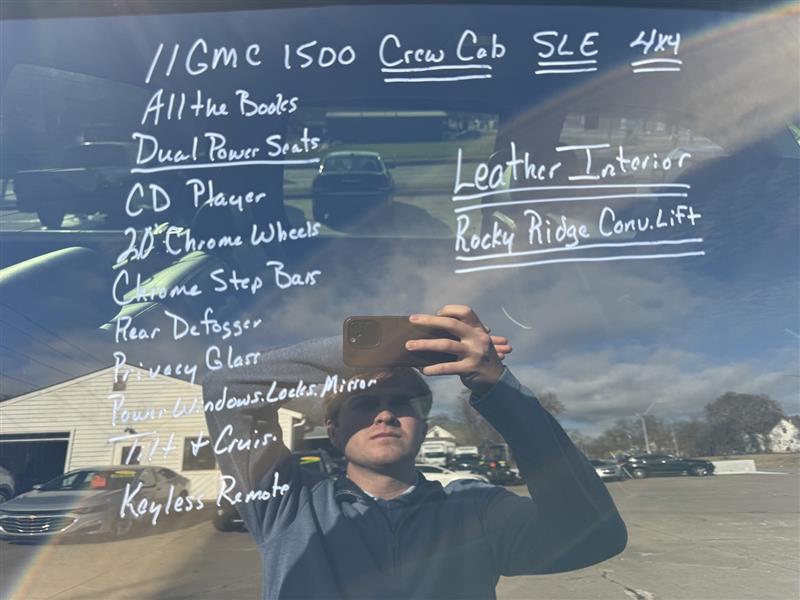 11 GMC 1500 Crew Cab SLE 4x4
All the Books
Dual Power Seats
CD Player
20" Chrome Wheels
Chrome Step Bars
Rear Defogger
Privacy Glass
Power Windows. Locks. Mirror
Tilt + Cruis.
Keyless Remote
Leather Interior
Rocky Ridge Conv. Lift